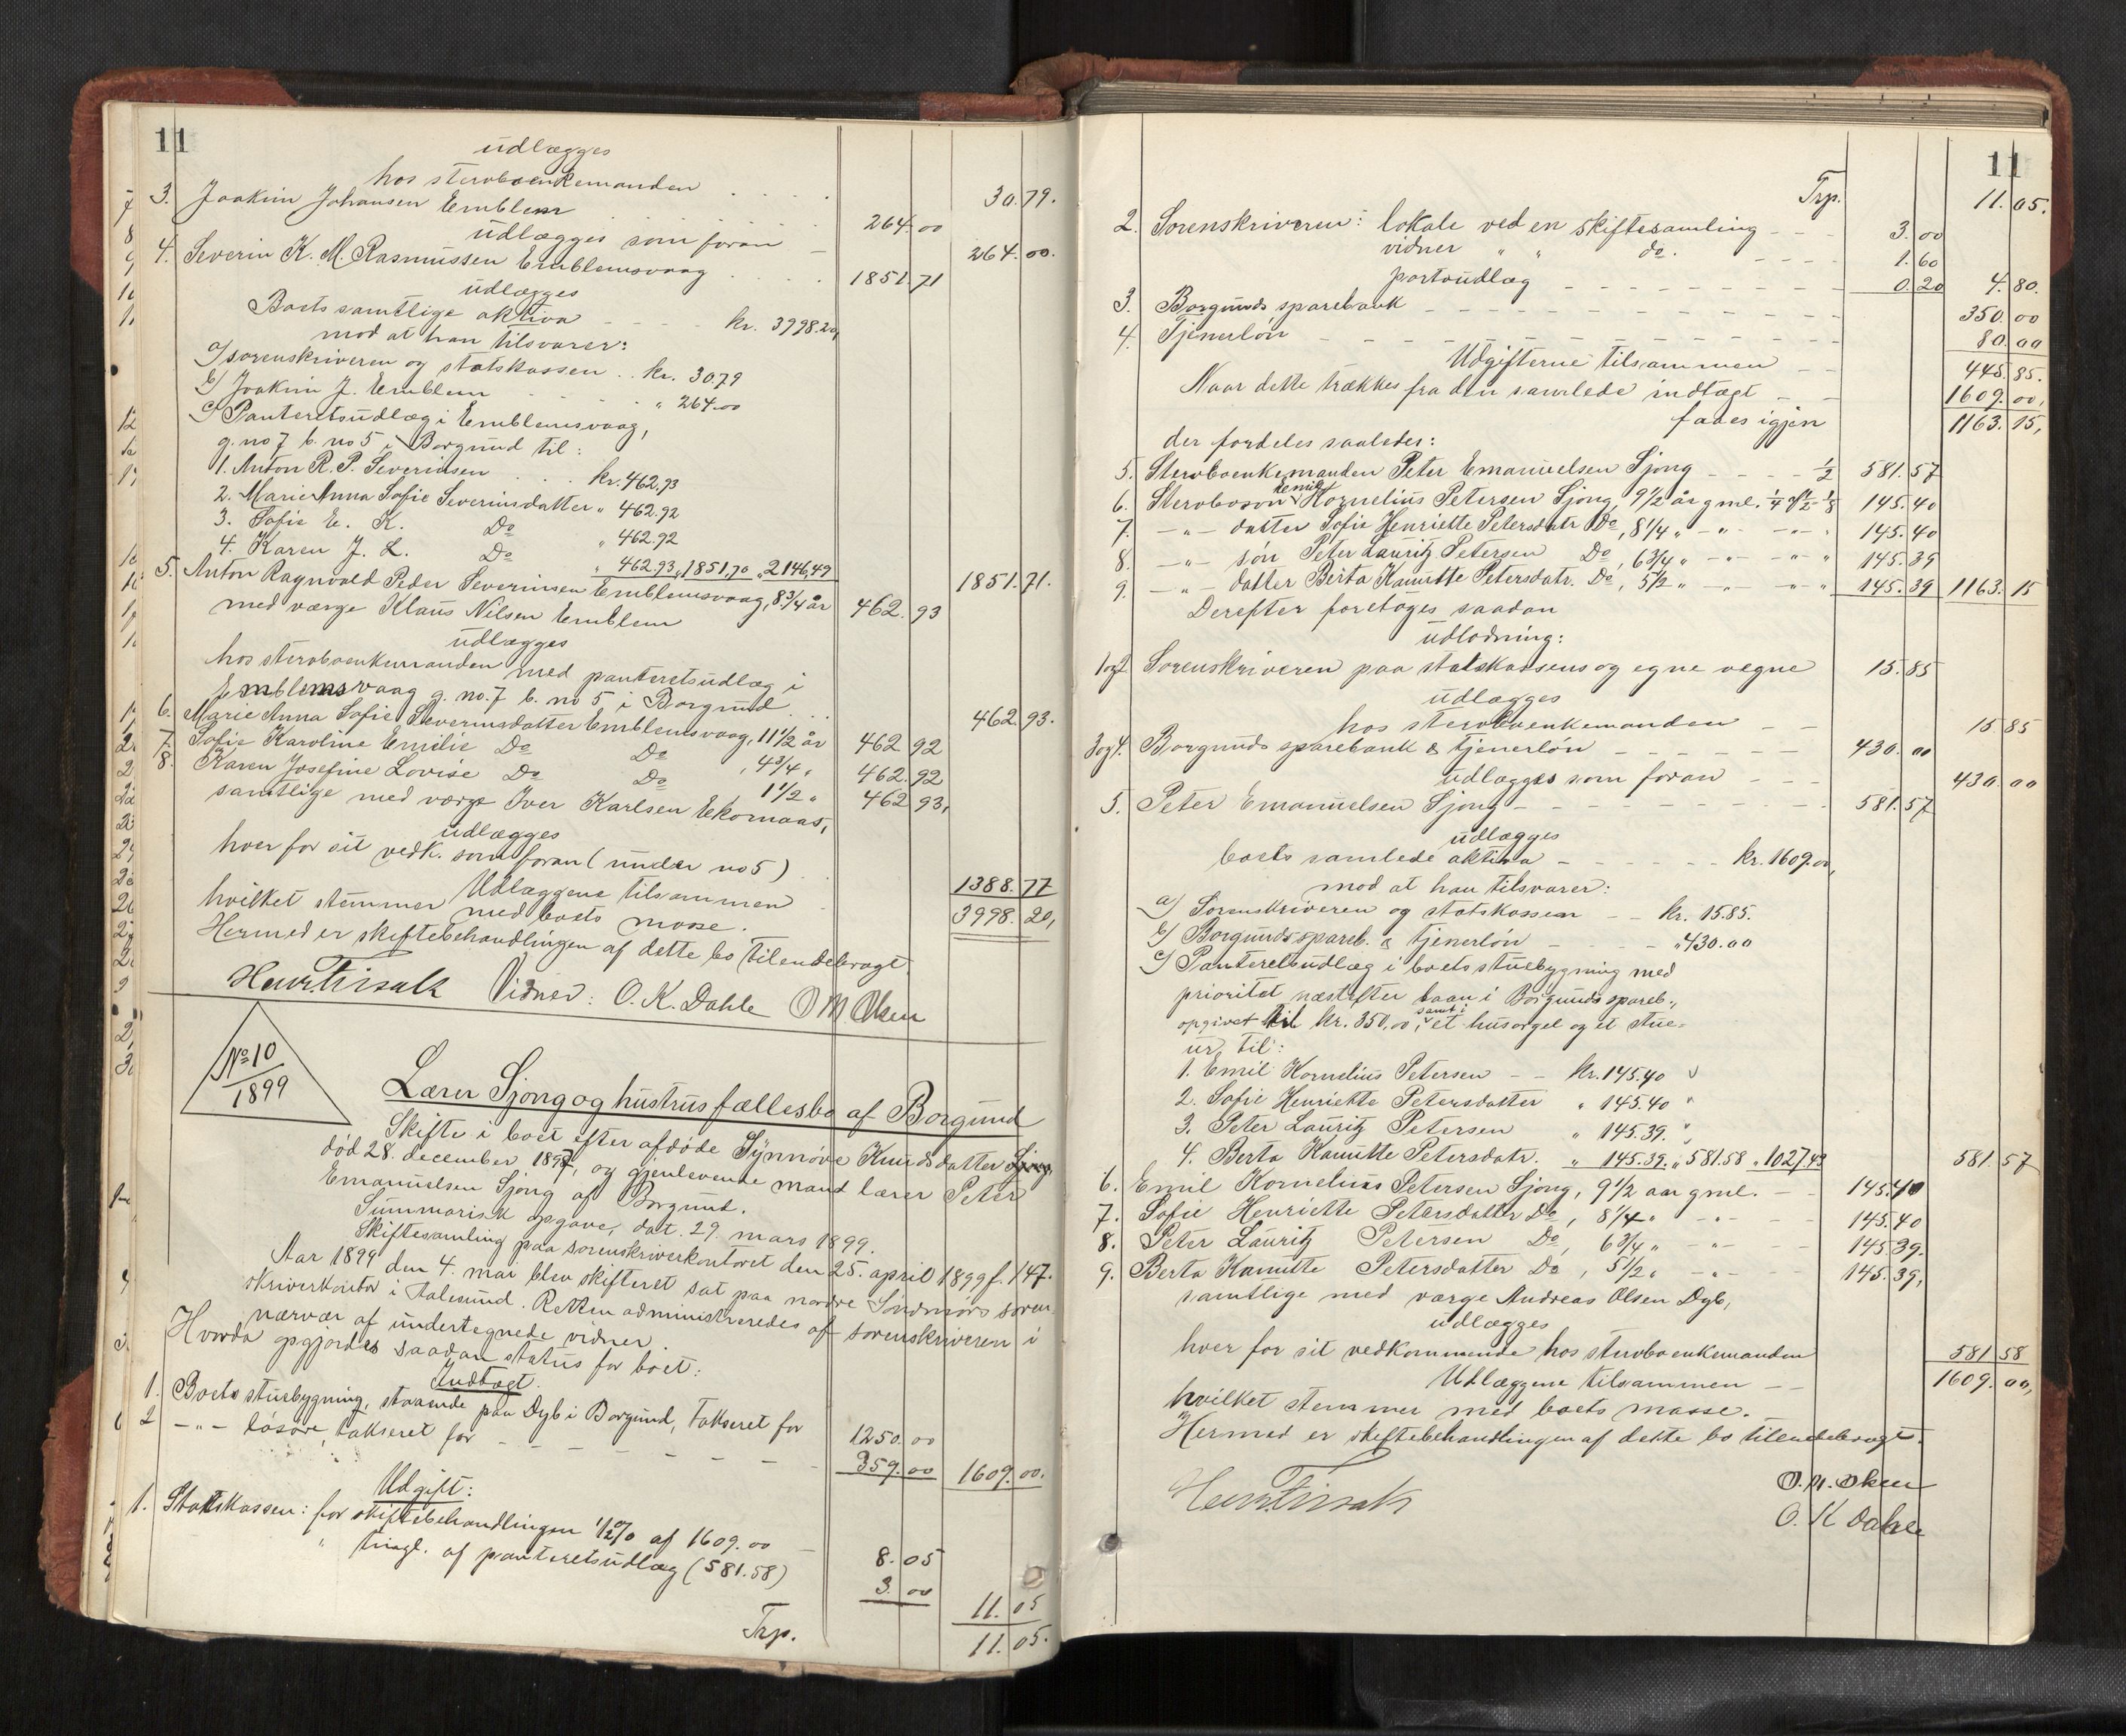 11
udlægges
hos stervboenkemanden . . . . 30.79.
3. Joakim Johansen Emblem . . . 264.00
udlægges som foran 264.00.
4. Severin K. M. Rasmussen Emblemsvaag . . . 1851.71
udlægges
Boets samtlige aktiva - - - - kr. 3998.20,
mod at han tilsvarer:
a) sorenskriveren og statskassen .. kr. 30.79
b) Joakim J. Emblem . . . . " 264.00
c) Panteretsudlæg i Emblemsvaag,
g. no 7 b. no 5 i Borgund til:
1. Anton R. P. Severinsen . . . kr. 462,93
2. Marie Anna Sofie Severinsdatter " 462.92
3. Sofie E. K. Do " 462.92
4. Karen J. L. Do " 462.93 " 1851.70 " 2146,49 1851.71.
5. Anton Ragnvald Peder Severinsen Emblemsvaag, 8 3/4 år
med værge Klaus Nilsen Emblem 462.93
udlægges
hos stervboenkemanden med panteretsudlæg i
Emblemsvaag g. no. 7 b. no 5 i Borgund . . . 462.93.
6. Marie Anna Sofie Severinsdatter Emblemsvaag, 11 1/2 år 462 92
7. Sofie Karoline Emilie Do Do , 4 3/4 " 462.92
8. Karen Josefine Lovise Do Do 1 1/2 " 462 93,
samtlige med værge Iver Karlsen Ekornaas,
udlægges
hver for sit vedk. som foran (under no 5) . 1388.77
Udlæggene tilsammen 3998.20,
hvilket stemmer med boets masse.
Hermed er skiftebehandlingen af dette bo tilendebragt.
Vidner: O. K. Dahle O M Olsen
No 10
1899
Lærer Sjong og hustrus fællesbo af Borgund
Skifte i boet efter afdøde Synnøve Knudsdatter Sjong,
død 28. december 1897, og gjenlevende mand lærer Peter
Emanuelsen Sjong af Borgund.
Summarisk opgave, dat. 29. mars 1899.
Skiftesamling paa sorenskriverkontoret den 25. april 1899 f. 147.
Aar 1899 den 4. mai blev skifteret sat paa nordre Søndmørs soren-
skriverkontor i Aalesund. Retten administreredes af sorenskriveren i
nærvær af undertegnede vidner.
Hvorda opgjordes saadan status for boet:
Indtægt.
1. Boets stuebygning, staaende paa Dyb i Borgund, takseret for 1250.00
2 -"- løsøre, takseret for - - - - - - 359.00 1609.00.
Udgift:
1. Statskassen: for skiftebehandlingen 1/2 % af 1609.00 8.05
" tingl. af panteretsudlæg (581.58) 3.00 11.05
Trp. 11.05.
11
Trp. 11.05.
2. Sorenskriveren: lokale ved en skiftesamling - - - 3.00
vidner " " do. - - - - 1.60
portoudlæg - - - - - - - - 0.20 4.80.
3. Borgunds sparebank - - - - - - - - - - 350.00
4. Tjenerløn - - - - - - - - - - - - - 80.00
Udgifterne tilsammen - - 445.85.
Naar dette trækkes fra den samlede indtægt - - 1609.00,
faaes igjen 1163.15,
der fordeles saaledes:
5. Stervboenkemanden Peter Emanuelsen Sjong - - - - 1/2 581.57
6. Stervboson Emil Kornelius Petersen Sjong, 9 1/2 år gml. 1/4 af 1/2 = 1/8 145.40
7. -"- datter Sofie Henriette Petersdatr Do, 8 1/4 " -"- -"- " 145.40
8. -"- søn Peter Lauritz Petersen Do, 6 3/4 " -"- -"- " 145.39
9. -"- datter Berta Kamitte Petersdatr. Do, 5 1/2 " -"- -"- " 145.39 1163.15
Derefter foretoges saadan
udlodning:
1og2 Sorenskriveren paa statskassens og egne vegne 15.85
udlægges
hos stervboenkemanden - - 15.85
3og4. Borgunds sparebank & tjenerløn - - - - - - 430.00
udlægges som foran - - - 430.00
5. Peter Emanuelsen Sjong - - - - - - - - - 581.57
udlægges
boets samlede aktiva - - - - - - kr. 1609.00,
mod at han tilsvarer:
a) Sorenskriveren og statskassen - - kr. 15.85.
b) Borgunds spareb. & tjenerløn - - - - " 430.00
c) Panteretsudlæg i boets stuebygning med
prioritet næstefter laan i Borgunds spareb.,
opgivet til kr. 350,00, samt i et husorgel og et stue-
ur, til:
1. Emil Kornelius Petersen - - kr. 145.40
2. Sofie Henriette Petersdatter " 145.40 "
3. Peter Lauritz Petersen " 145.39. "
4. Berta Kamitte Petersdatr. " 145.39. " 581.58 " 1027.43 581.57
6. Emil Kornelius Petersen Sjong, 9 1/2 aar gml. - - 145.40
7. Sofie Henriette Petersdatter Do, 8 1/4 " -"- - - 145.40
8. Peter Lauritz Petersen Do, 6 3/4 " -"- - - 145.39.
9. Berta Kamitte Petersdatter Do, 5 1/2 " -"- - - 145.39,
samtlige med værge Andreas Olsen Dyb,
udlægges
hver for sit vedkommende hos stervboenkemanden 581.58
Udlæggene tilsammen - - 1609.00,
hvilket stemmer med boets masse.
Hermed er skiftebehandlingen af dette bo tilendebragt.
O. M. Olsen
O. K Dahle